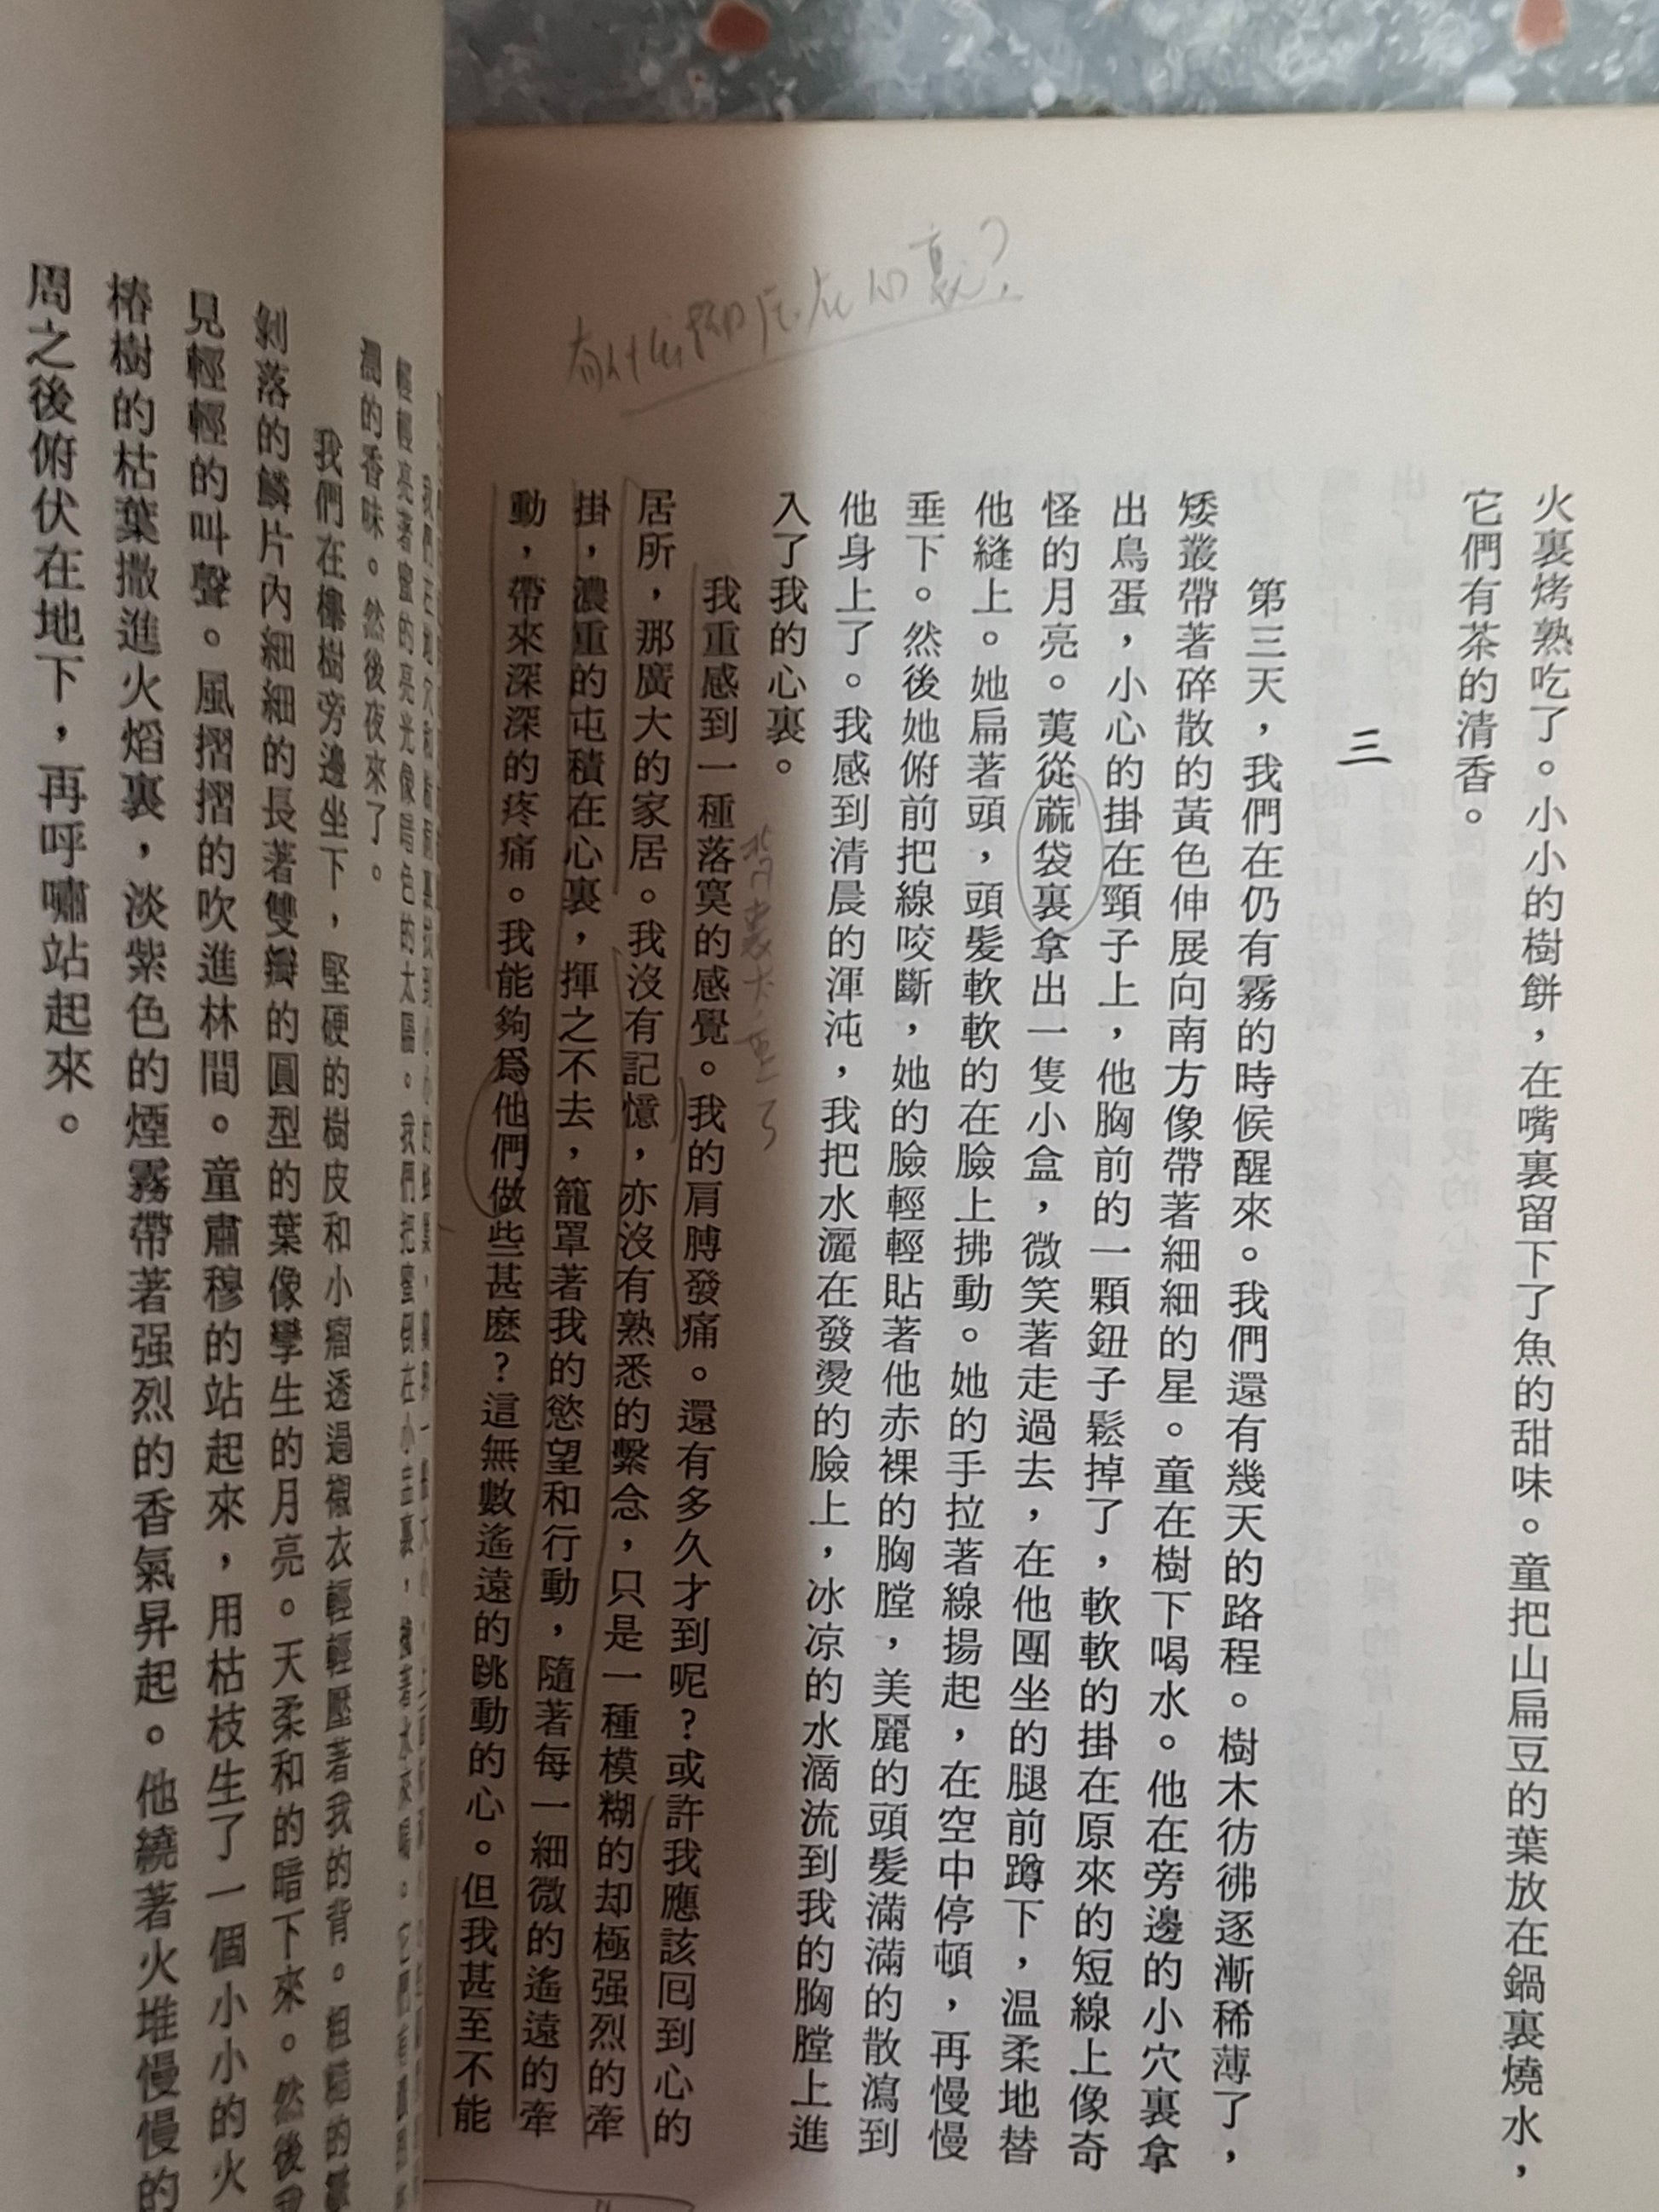 火裏烤熟吃了。小小的樹餅，在嘴裏留下了魚的甜味。童把山扁豆的葉放在鍋裏燒水，
它們有茶的清香。
三
第三天，我們在仍有霧的時候醒來。我們還有幾天的路程。樹木彷彿逐漸稀薄了，
矮叢帶著碎散的黃色伸展向南方像帶著細細的星。童在樹下喝水。他在旁邊的小穴裏拿
出鳥蛋，小心的掛在頸子上，他胸前的一顆鈕子鬆掉了，軟軟的掛在原來的短線上像奇
怪的月亮。荑從蔴袋裏拿出一隻小盒，微笑著走過去，在他團坐的腿前蹲下，温柔地替
他縫上。她扁著頭，頭髮軟軟的在臉上拂動。她的手拉著線揚起，在空中停頓，再慢慢
垂下。然後她俯前把線咬斷，她的臉輕輕貼著他赤裸的胸膛，美麗的頭髮滿滿的散瀉到
他身上了。我感到清晨的渾沌，我把水灑在發燙的臉上，冰凉的水滴流到我的胸膛上進
入了我的心裏。
我重感到一種落寞的感覺。我的肩膊發痛。還有多久才到呢？或許我應該囘到心的
居所，那廣大的家居。我沒有記憶，亦沒有熟悉的繫念，只是一種模糊的却極强烈的牽
掛，濃重的屯積在心裏，揮之不去，籠罩著我的慾望和行動，隨著每一細微的遙遠的牽
動，帶來深深的疼痛。我能夠爲他們做些甚麽？這無數遙遠的跳動的心。但我甚至不能
有什么 在心裏？
潤的香味。然後夜來了。
我們在橡樹旁邊坐下，堅硬的樹皮和小瘤透過襯衣輕輕壓著我的背。粗糙的
剝落的鱗片內細細的長著雙瓣的圓型的葉像孿生的月亮。天柔和的暗下來。然後我
見輕輕的叫聲。風摺摺的吹進林間。童肅穆的站起來，用枯枝生了一個小小的火
樁樹的枯葉撒進火焰裏，淡紫色的煙霧帶著强烈的香氣昇起。他繞著火堆慢慢的
周之後俯伏在地下，再呼嘯站起來。